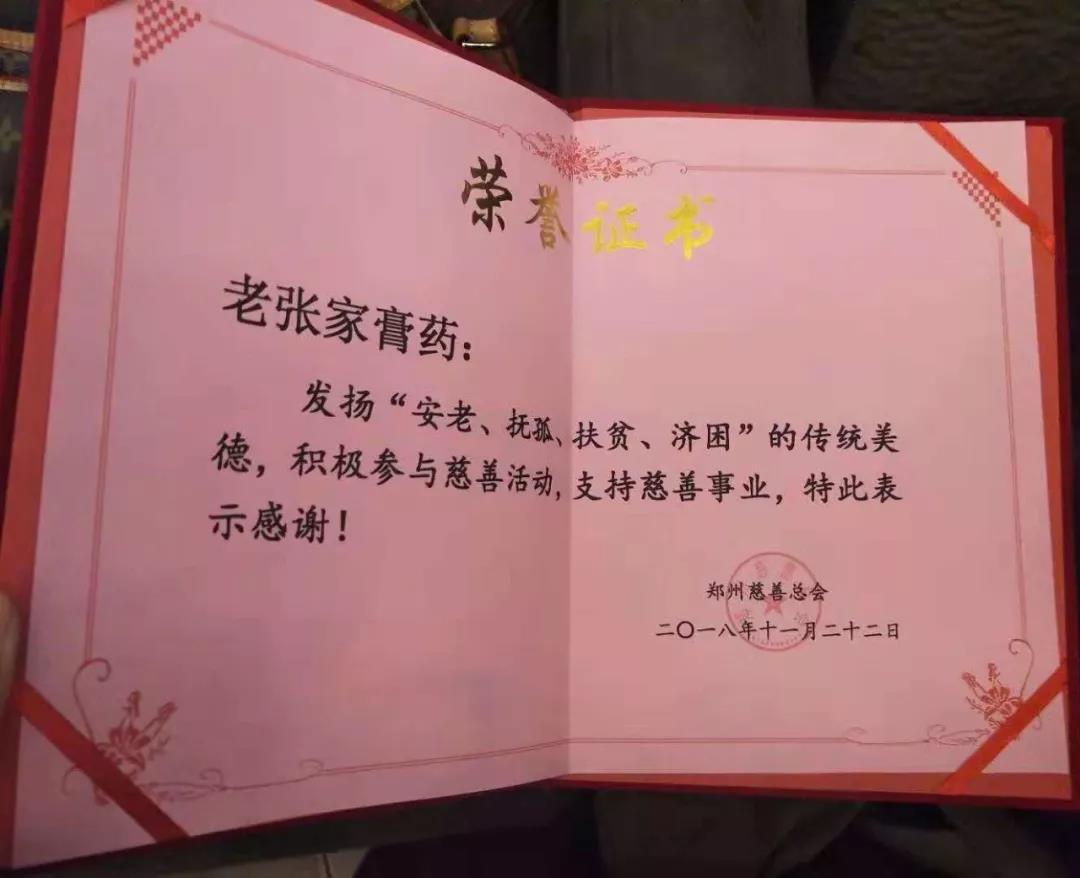 荣誉证书
老张家膏药：
发扬“安老、抚孤、扶贫、济困”的传统美
德，积极参与慈善活动，支持慈善事业，特此表
示感谢！
郑州慈善总会
二〇一八年十一月二十二日